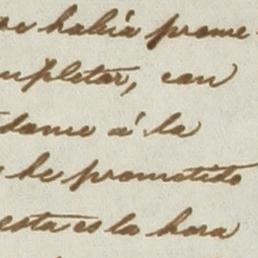 se había prome-
mpletar, con
dame á la
he prometido
esta es la hora